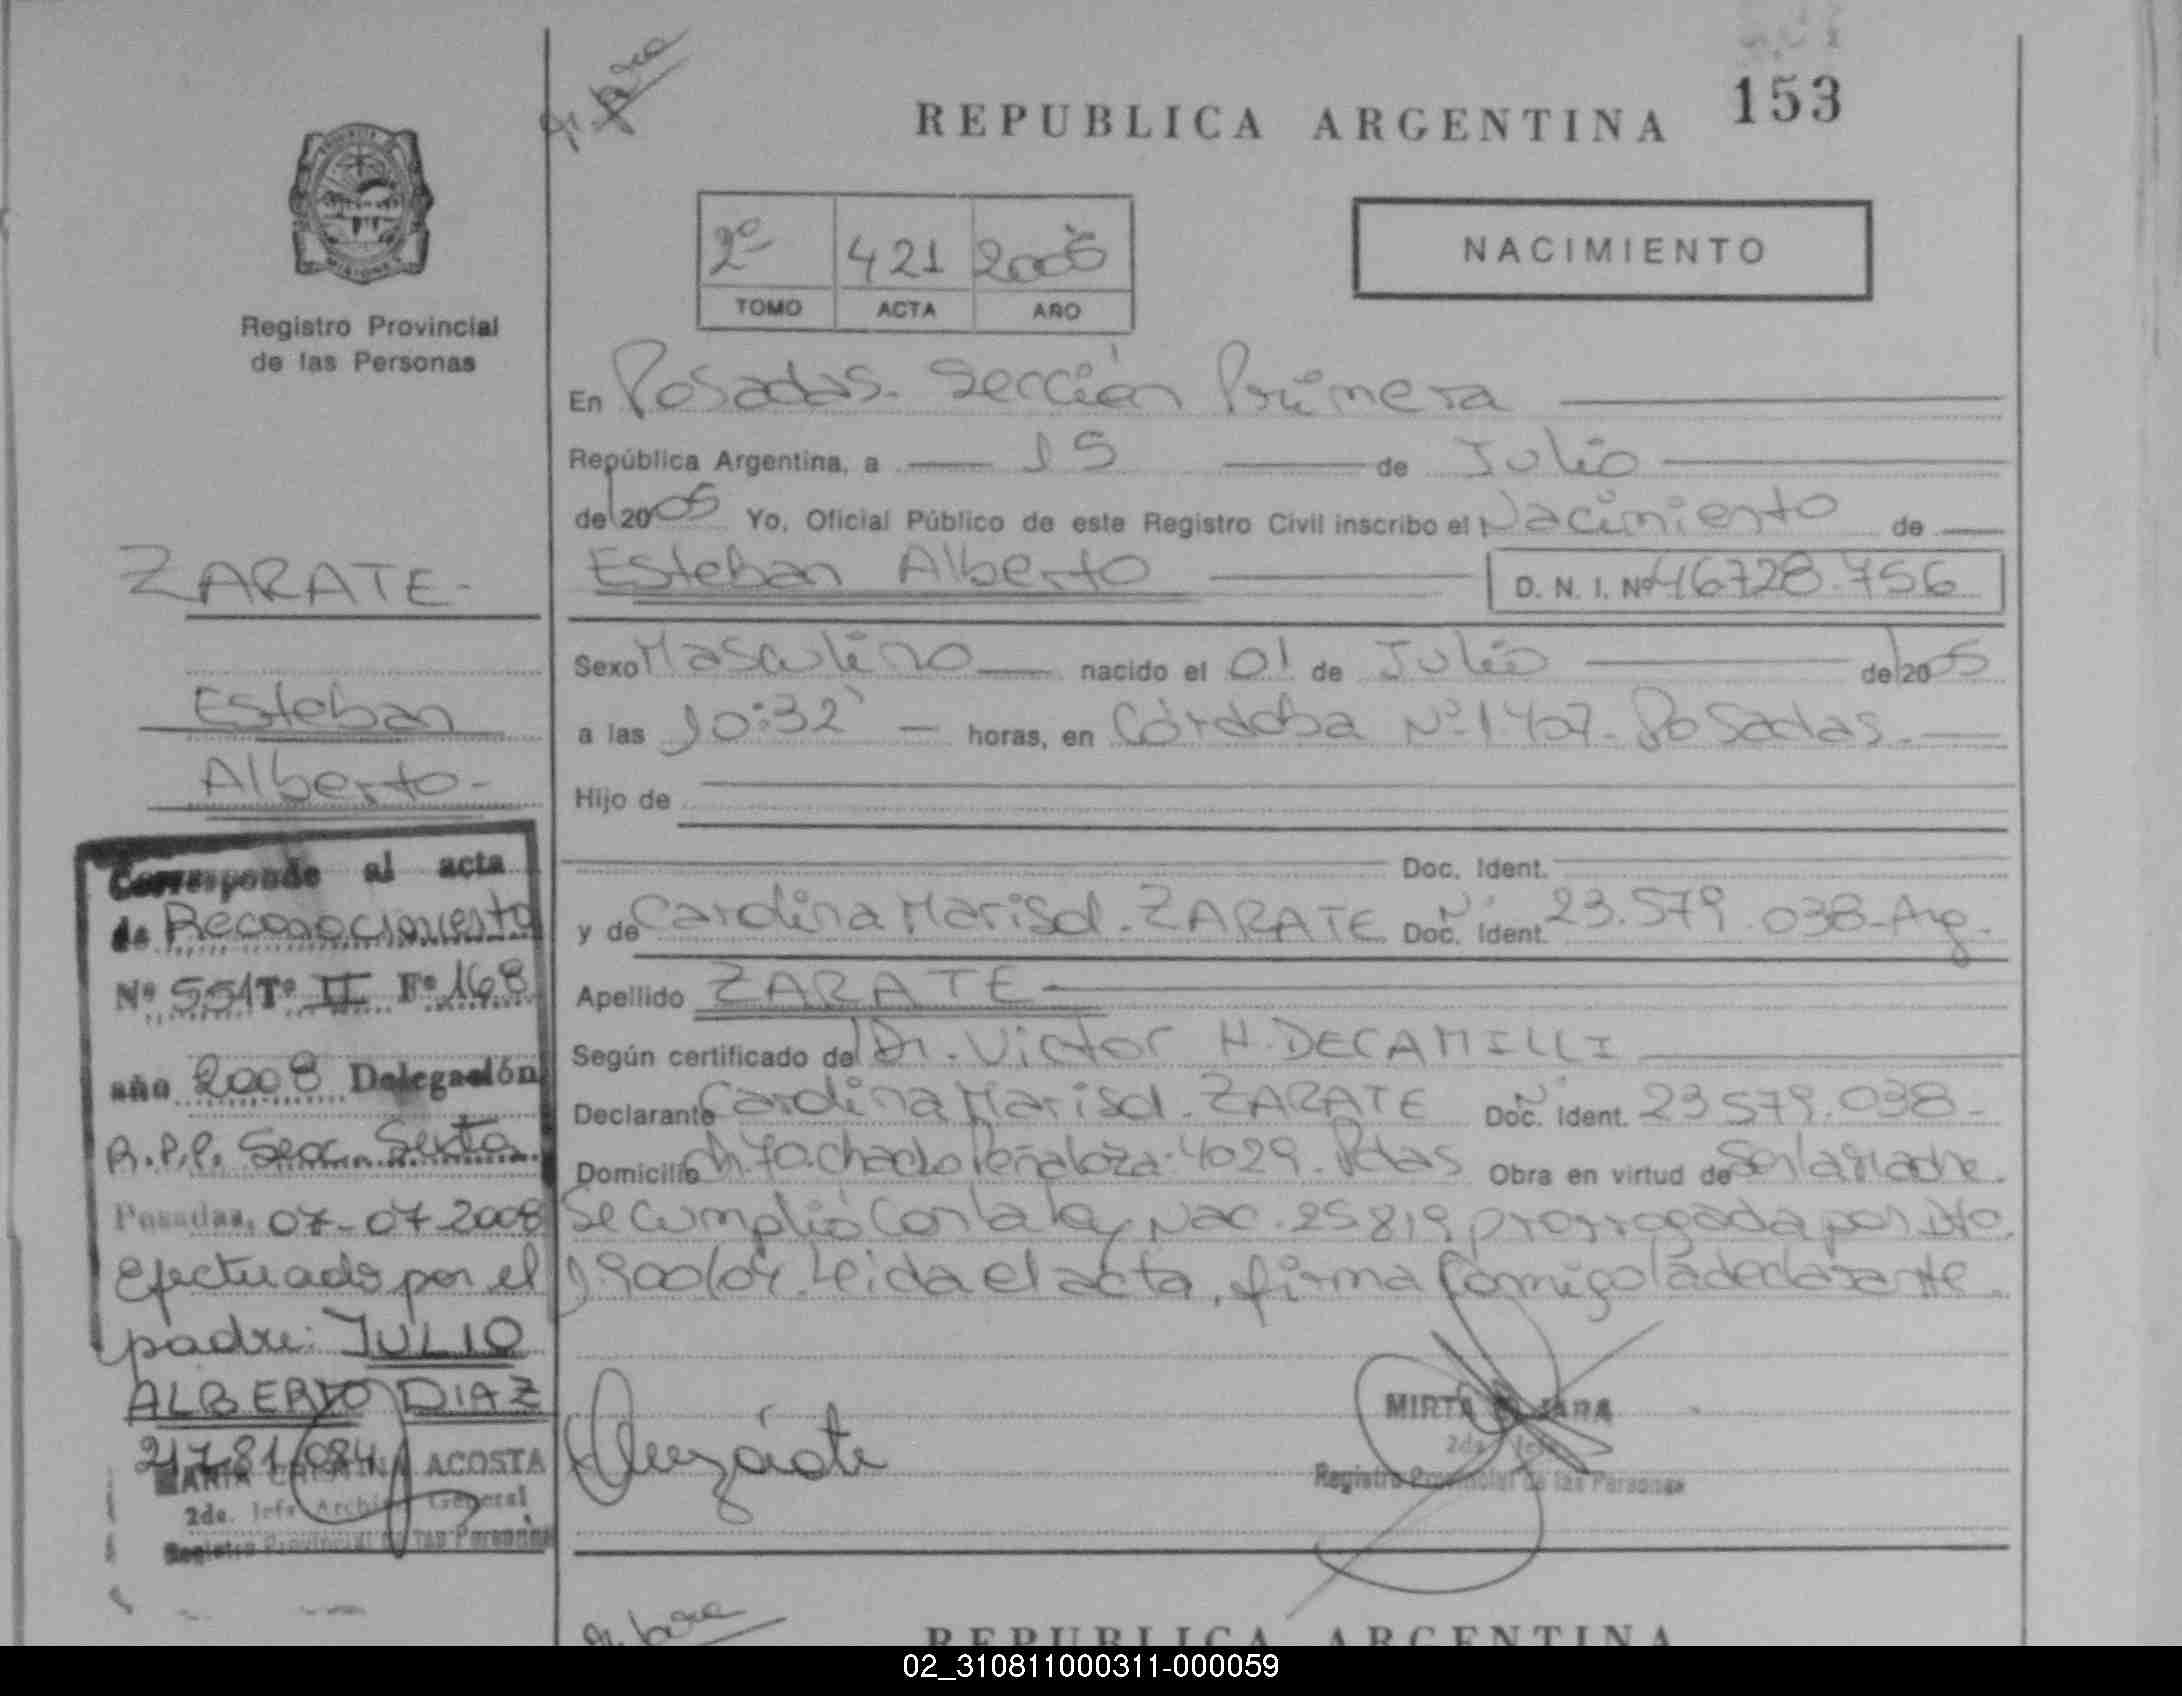 REPUBLICA ARGENTINA 153
NACIMIENTO
2º 421 2005
TOMO ACTA AÑO
Registro Provincial
de las Personas
En Posadas. Sección Primera
República Argentina, a 15 de Julio
del 2005 Yo, Oficial Público de este Registro Civil inscribo el Nacimiento de
Esteban Alberto D. N. I. Nº 46728.756
Sexo Masculino nacido el 01 de Julio del 2005
a las 10:32 horas, en Córdoba Nº 1407. Posadas.
Hijo de
Doc. Ident.
y de Carolina Marisol. ZARATE Doc. Ident. 23.579.038-Arg.
Apellido ZARATE
Según certificado del Dr. Victor H. DECAMILLI
Declarante Carolina Marisol. ZARATE Doc. Ident. 23579.038-
Domicilio Ch. 70. Chacho Peñaloza. 4029. Pdas Obra en virtud de Ser la Madre.
Se cumplió con la Ley Nac. 25819 prorrogada por Dto.
1900/04. Leida el acta, firma conmigo la declarante.
MIRTA JARA
2da. Jefe
Registro Provincial de las Personas
ZARATE-
Esteban
Alberto-
Corresponde al acta
de Reconocimiento
Nº 551 Tº II Fº 168
año 2008 Delegación
R.P.P. Secc. Sexta
Posadas, 07-07-2008
Efectuado por el
padre: JULIO
ALBERTO DIAZ
21.781.084
MARIA CRISTINA ACOSTA
2da. Jefe Archivo General
Registro Provincial de las Personas
REPUBLICA ARGENTINA
02_310811000311-000059